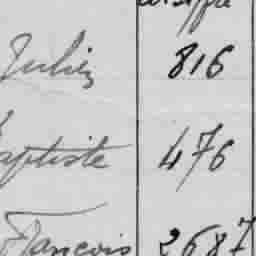 Julien 816
aptiste 476
François 2687